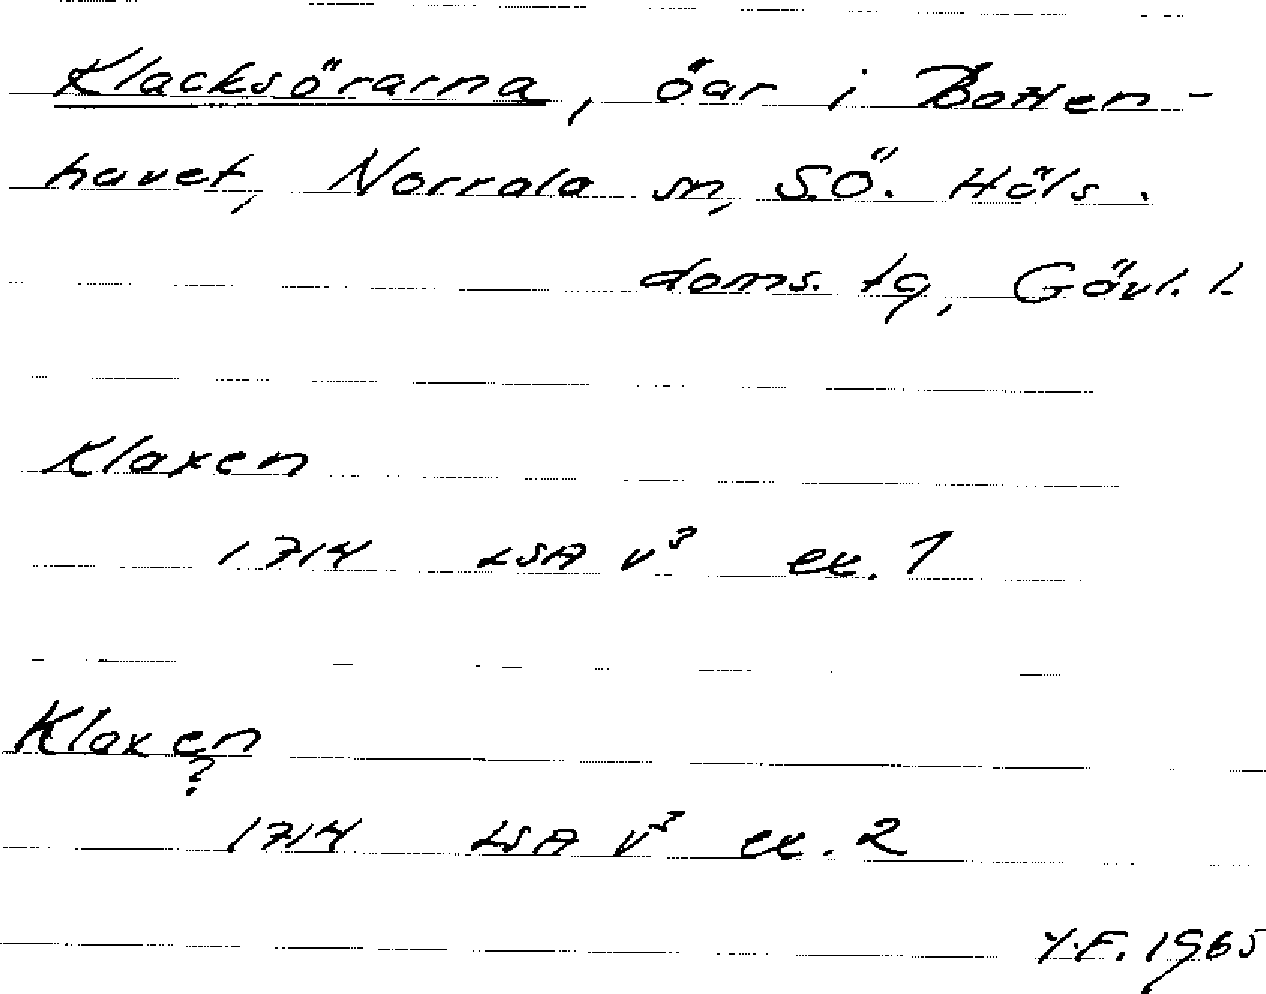 Klacksörarna, öar i Botten-
havet, Norrala sn, S.Ö. Häls.
doms. tg, Gävl. l.
Klaxen
1714 LSA v³ ex. 1
Klaxen
?
1714 LSA v³ ex. 2
Y.F. 1965